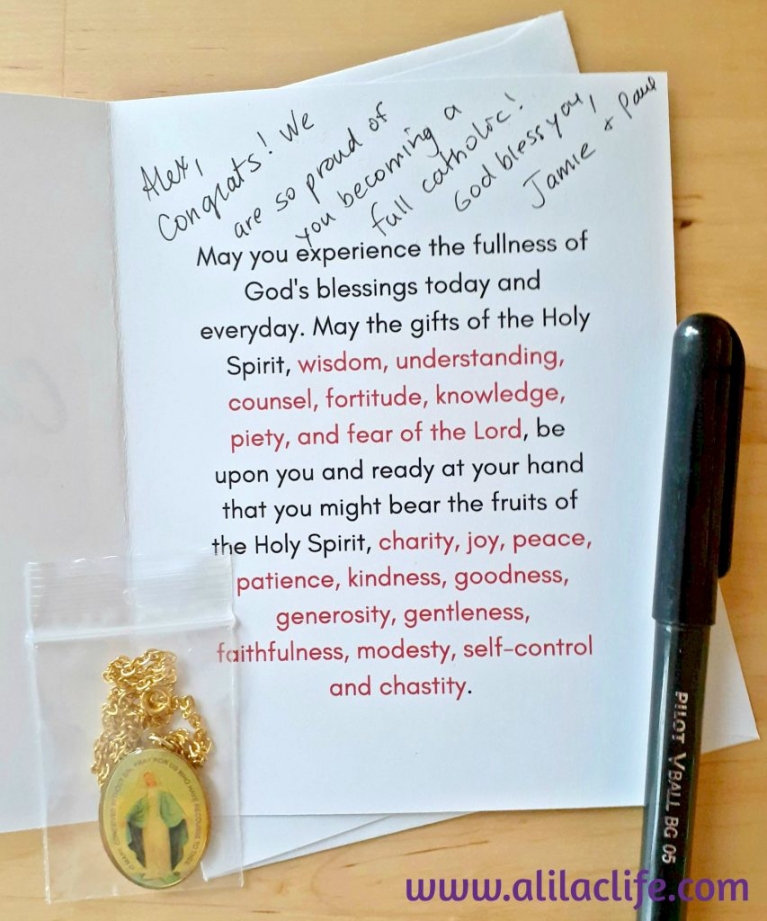 Alex,
Congrats! We
are so proud of
you becoming a
full catholic!
God bless you,
Jamie & Paul
May you experience the fullness of
God's blessings today and
everyday. May the gifts of the Holy
Spirit, wisdom, understanding,
counsel, fortitude, knowledge,
piety, and fear of the Lord, be
upon you and ready at your hand
that you might bear the fruits of
the Holy Spirit, charity, joy, peace,
patience, kindness, goodness,
generosity, gentleness,
faithfulness, modesty, self-control
and chastity.
PILOT VBALL BG 05
www.alilaclife.com